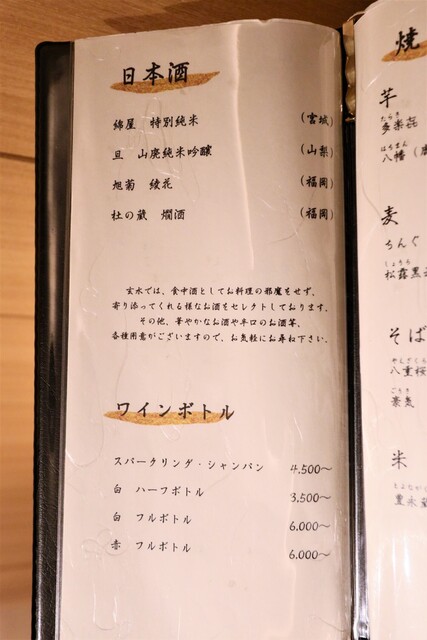 日本酒
綿屋 特別純米 (宮城)
旦 山廃純米吟醸 (山梨)
旭菊 綾花 (福岡)
杜の蔵 燗酒 (福岡)
玄水では、食中酒としてお料理の邪魔をせず、
寄り添ってくれる様なお酒をセレクトしております。
その他、華やかなお酒や辛口のお酒等、
各種用意がございますので、お気軽にお尋ね下さい。
ワインボトル
スパークリング・シャンパン 4,500〜
白 ハーフボトル 3,500〜
白 フルボトル 6,000〜
赤 フルボトル 6,000〜
焼
芋
たらき
多楽㐂
はちまん
八幡(
麦
ちんぐ
しょうろ
松露黒
そば
やえざくら
八重桜
ごうき
豪気
米
とよなが
豊永蔵